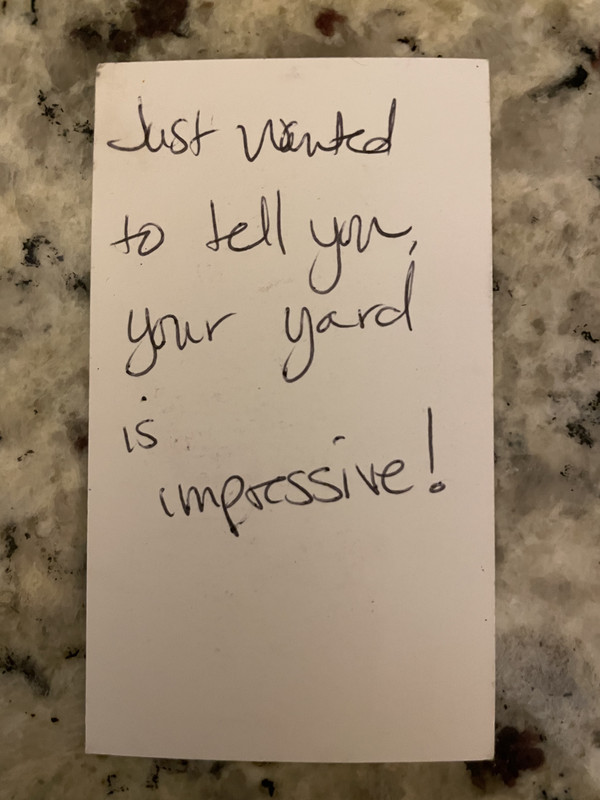 Just wanted
to tell you,
your yard
is
impressive!